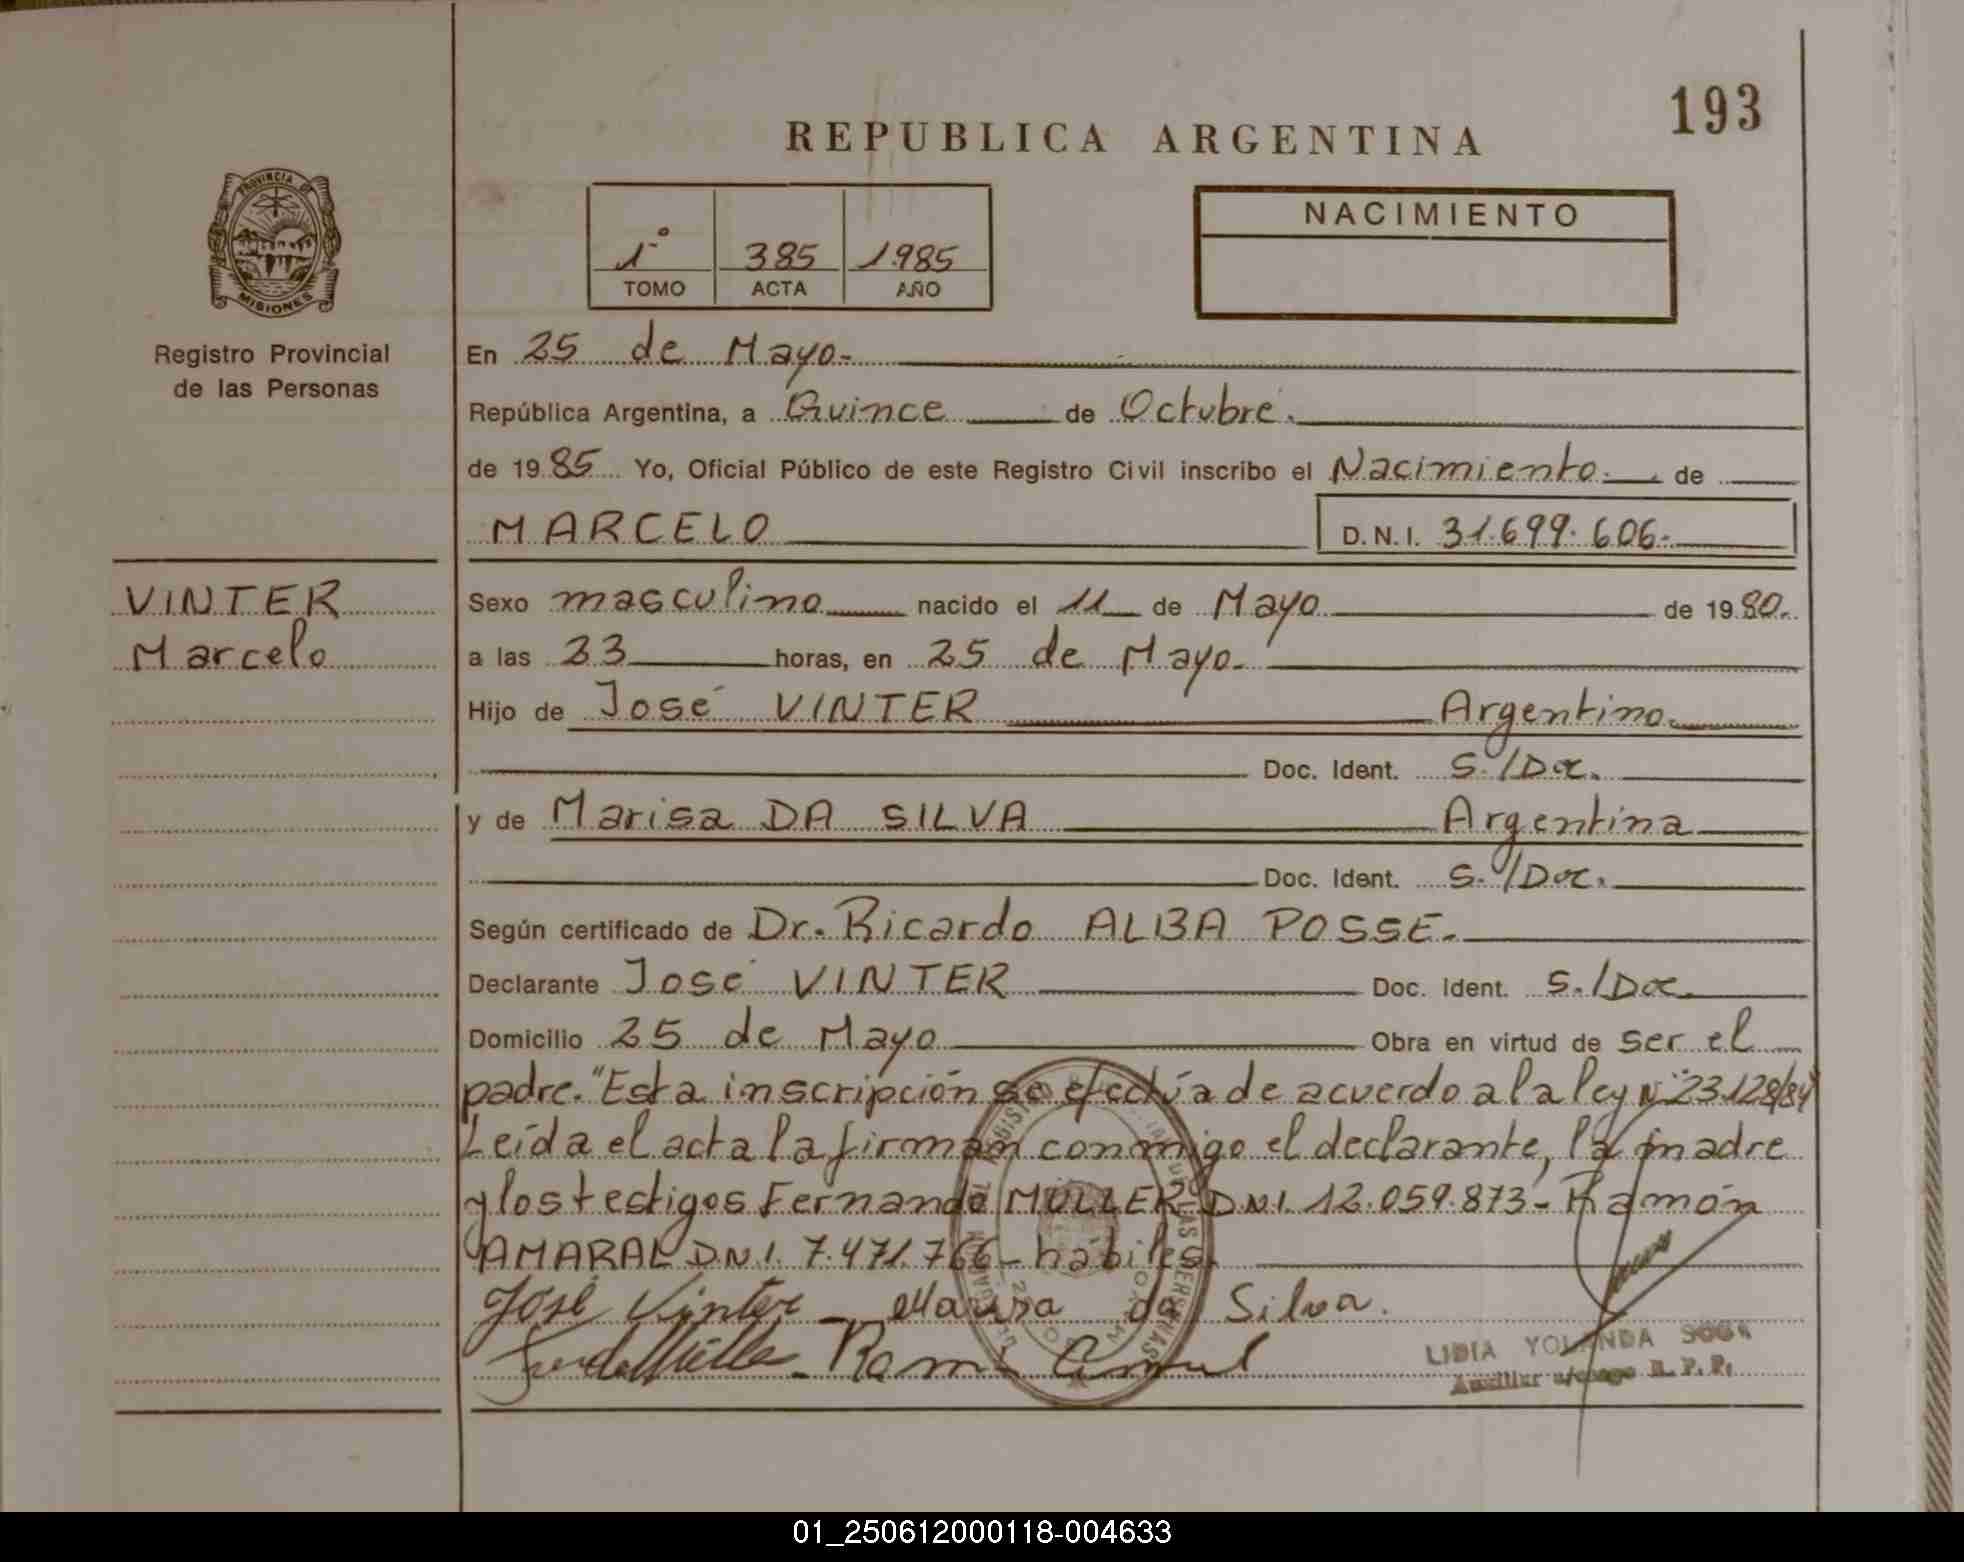 193
REPUBLICA ARGENTINA
PROVINCIA DE
MISIONES
Registro Provincial
de las Personas
1º 385 1985
TOMO ACTA AÑO
NACIMIENTO
En 25 de Mayo.
República Argentina, a Quince de Octubre.
de 1985 Yo, Oficial Público de este Registro Civil inscribo el Nacimiento. de
MARCELO D.N.I. 31.699.606.
VINTER
Marcelo
Sexo masculino nacido el 11 de Mayo de 1980.
a las 23 horas, en 25 de Mayo.
Hijo de José VINTER Argentino.
Doc. Ident. S./Doc.
y de Marisa DA SILVA Argentina
Doc. Ident. S./Doc.
Según certificado de Dr. Ricardo ALBA POSSE.
Declarante José VINTER Doc. Ident. S./Doc.
Domicilio 25 de Mayo Obra en virtud de ser el
padre. "Esta inscripción se efectúa de acuerdo a la ley Nº 23.128/84"
Leída el acta la firman conmigo el declarante, la madre
y los testigos Fernando MULLER D.N.I. 12.059.873- Ramón
AMARAL D.N.I. 7.471.766- hábiles.
José Vinter - Marisa da Silva.
Ramón
LIDIA YOLANDA
Auxiliar a/cargo R. P. P.
01_250612000118-004633